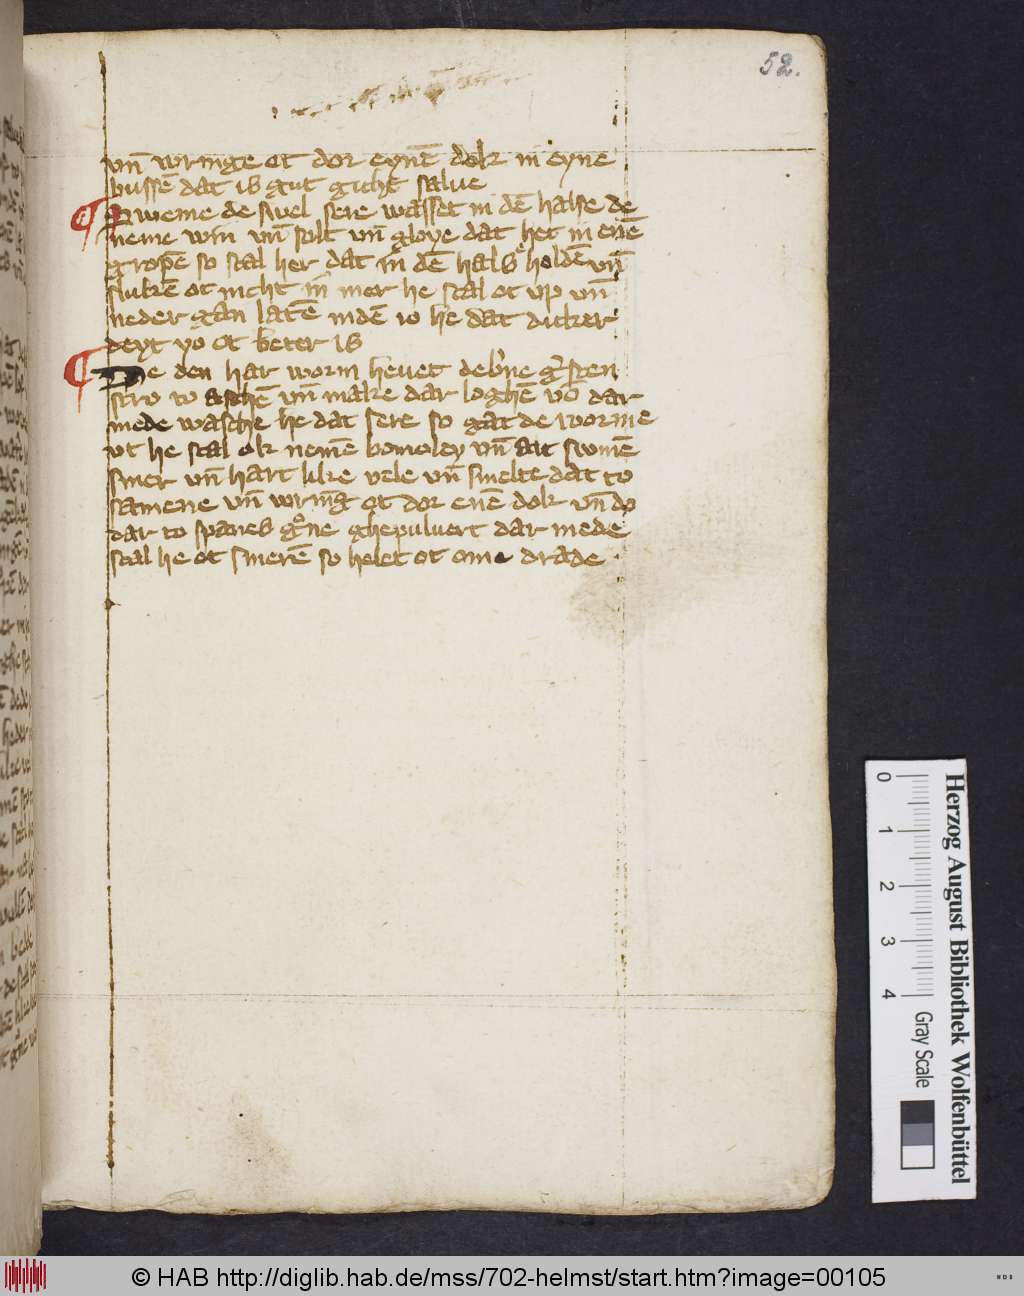 52.
vn̄ wringe ot dor eynē dok in eyne
bussē dat is gut gicht salue
¶ Sweme de siuel sere wasset in dē halse de
neme win vn̄ solt vn̄ gloye dat het in enē
gropē so scal her dat in dē hals holdē vn̄
slukē ot nicht in mer he scal ot vp vn̄
neder gan latē indē io he dat dicker
deyt yo ot beter is
¶ De den har worm heuet de bʼne gʼsten
stro to aschē vn̄ make dar loghē vō dar
mede wasche he dat sere so gat de worme
vt he scal ok nemē bomoley vn̄ dat swinē
smer vn̄ hart like vele vn̄ smelte dat to
samene vn̄ wring ot dor enē dok vn̄ do
dar to spanes gͦne ghepuluert dar mede
scal he ot smerē so helet ot ome drade
0 1 2 3 4
Gray Scale
Herzog August Bibliothek Wolfenbüttel
© HAB http://diglib.hab.de/mss/702-helmst/start.htm?image=00105